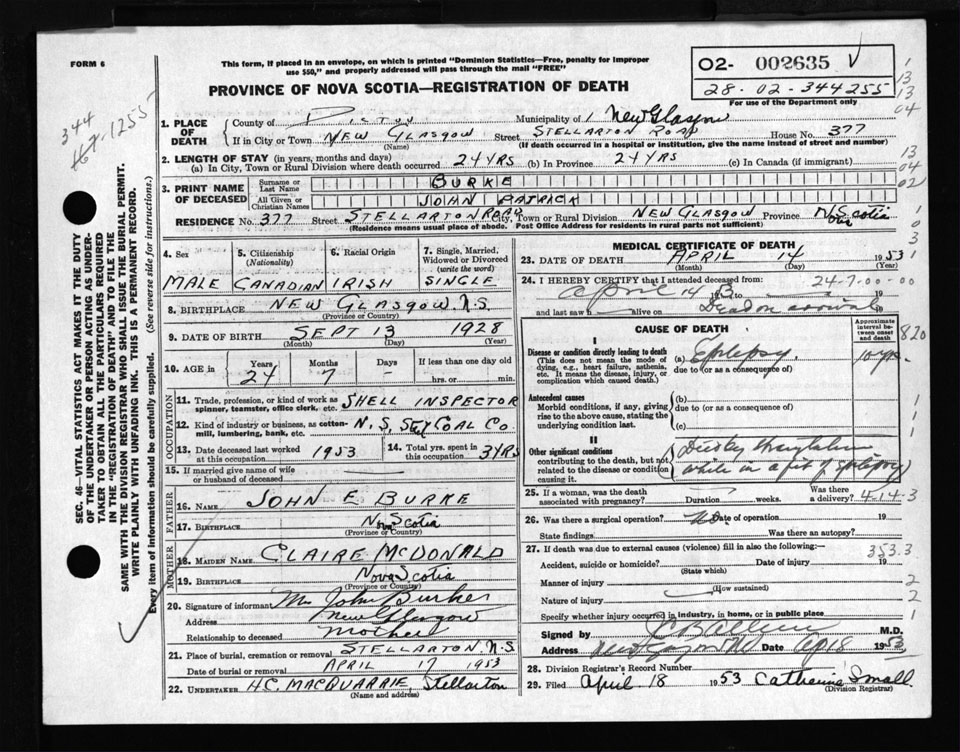 FORM 6
This form, if placed in an envelope, on which is printed "Dominion Statistics—Free, penalty for improper
use $50," and properly addressed will pass through the mail "FREE"
PROVINCE OF NOVA SCOTIA—REGISTRATION OF DEATH
02- 002635
28-02-344255
For use of the Department only
344
1255
1. PLACE OF DEATH
County of Pictou Municipality of New Glasgow
If in City or Town NEW GLASGOW Street STELLARTON ROAD House No. 377
(Name) (If death occurred in a hospital or institution, give the name instead of street and number)
2. LENGTH OF STAY (in years, months and days)
(a) In City, Town or Rural Division where death occurred 24 YRS (b) In Province 24 YRS (c) In Canada (if immigrant)
3. PRINT NAME OF DECEASED
Surname or Last Name BURKE
All Given or Christian Names JOHN PATRICK
RESIDENCE No. 377 Street STELLARTON ROAD City, Town or Rural Division NEW GLASGOW Province N. Scotia
(Residence means usual place of abode. Post Office Address for residents in rural parts not sufficient)
4. Sex
5. Citizenship (Nationality)
6. Racial Origin
7. Single, Married, Widowed or Divorced (write the word)
MALE CANADIAN IRISH SINGLE
8. BIRTHPLACE NEW GLASGOW. N.S.
(Province or Country)
9. DATE OF BIRTH SEPT 13 1928
(Month) (Day) (Year)
10. AGE in Years Months Days If less than one day old
24 7 – hrs. or min.
OCCUPATION
11. Trade, profession, or kind of work as spinner, teamster, office clerk, etc. SHELL INSPECTOR
12. Kind of industry or business, as cotton-mill, lumbering, bank, etc. N.S. St & COAL CO
13. Date deceased last worked at this occupation 1953
14. Total yrs. spent in this occupation 3 YRS
15. If married give name of wife or husband of deceased
FATHER
16. NAME JOHN E BURKE
17. BIRTHPLACE Nova Scotia
(Province or Country)
MOTHER
18. MAIDEN NAME CLAIRE MCDONALD
19. BIRTHPLACE Nova Scotia
(Province or Country)
20. Signature of informant Mrs John Burke
Address New Glasgow
Relationship to deceased Mother
21. Place of burial, cremation or removal STELLARTON, N.S
Date of burial or removal APRIL 17 1953
22. UNDERTAKER H.C. MACQUARRIE, Stellarton
(Name and address)
MEDICAL CERTIFICATE OF DEATH
23. DATE OF DEATH APRIL 14 1953
(Month) (Day) (Year)
24. I HEREBY CERTIFY that I attended deceased from: 24-7-00-00
April 14 1953 to 19
and last saw h alive on Dead on arrival 19
CAUSE OF DEATH
Approximate interval between onset and death
I
Disease or condition directly leading to death
(This does not mean the mode of dying, e.g., heart failure, asthenia, etc. It means the disease, injury, or complication which caused death.)
(a) Epilepsy. 10 yrs.
due to (or as a consequence of)
Antecedent causes
Morbid conditions, if any, giving rise to the above cause, stating the underlying condition last.
(b)
due to (or as a consequence of)
(c)
II
Other significant conditions
contributing to the death, but not related to the disease or condition causing it.
while in a fit of epilepsy
25. If a woman, was the death associated with pregnancy? Duration weeks. Was there a delivery? 4-14-3
26. Was there a surgical operation? No Date of operation 19
State findings Was there an autopsy?
27. If death was due to external causes (violence) fill in also the following:— 353.3
Accident, suicide or homicide? Date of injury 19
(State which)
Manner of injury
(How sustained)
Nature of injury
Specify whether injury occurred in industry, in home, or in public place
Signed by M.D.
Address Date Ap 18 1953
28. Division Registrar's Record Number
29. Filed April 18 1953 Catherine Small
(Division Registrar)
SEC. 46—VITAL STATISTICS ACT MAKES IT THE DUTY
OF THE UNDERTAKER OR PERSON ACTING AS UNDER-
TAKER TO OBTAIN ALL THE PARTICULARS REQUIRED
IN THE "REGISTRATION OF DEATH" AND TO FILE THE
SAME WITH THE DIVISION REGISTRAR WHO SHALL ISSUE THE BURIAL PERMIT.
WRITE PLAINLY WITH UNFADING INK. THIS IS A PERMANENT RECORD.
Every item of information should be carefully supplied. (See reverse side for instructions.)
1
13
13
04
13
04
02
1
0
3
1
820
1
1
1
2
2
1